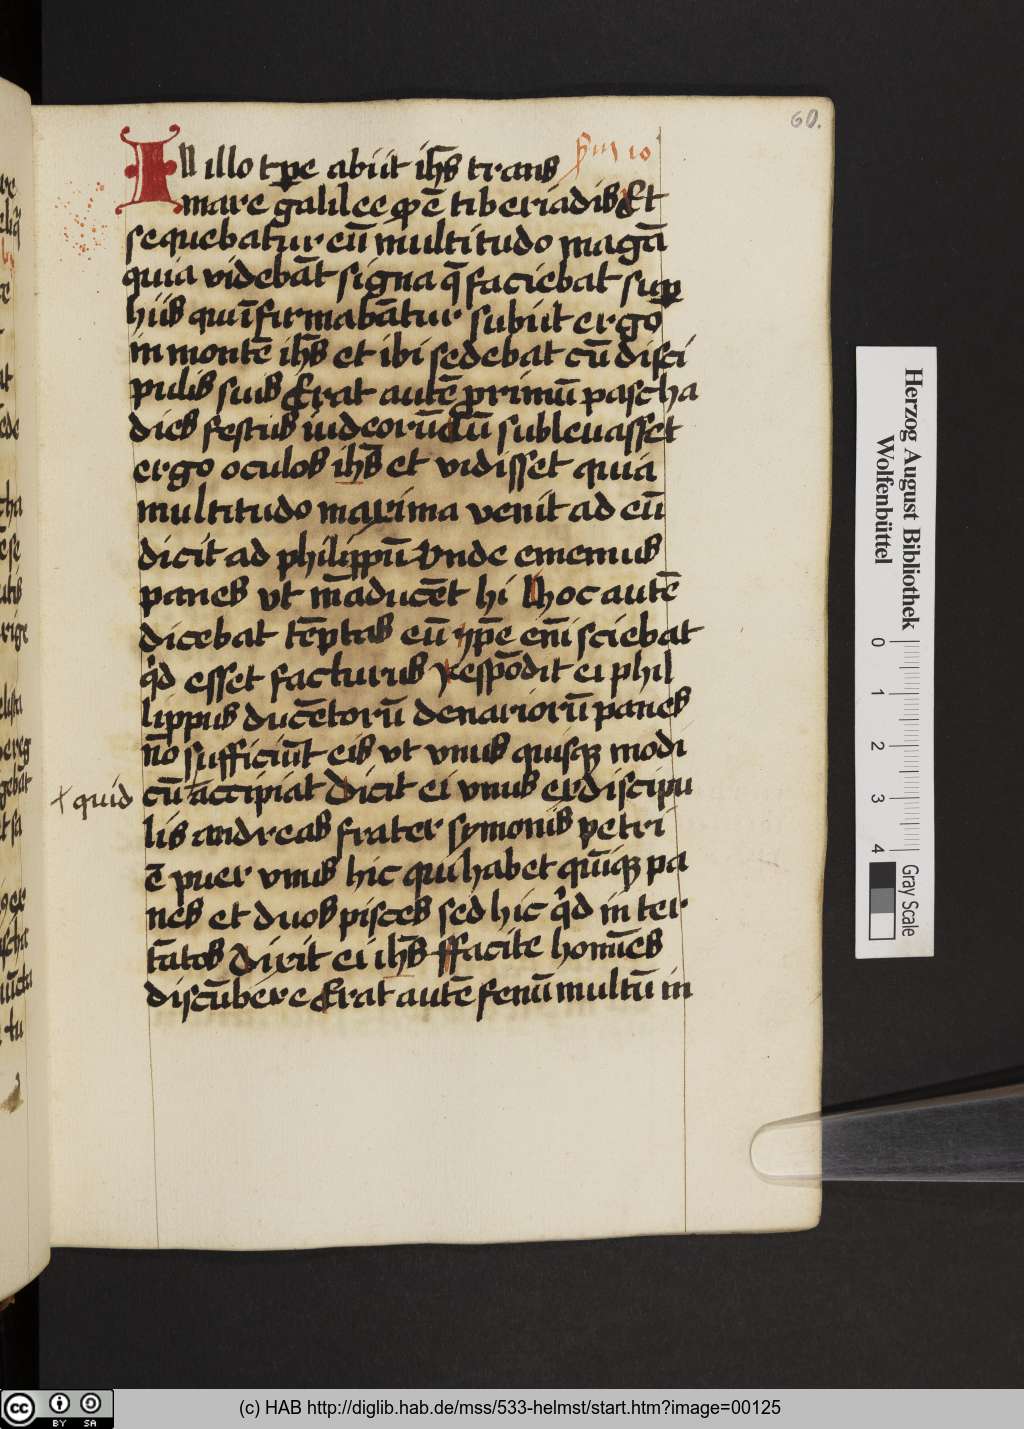 60.
In illo tp̄e abiit ih̄s trans
mare galilee qd̄ ē tiberiadis Et
sequebatur eū multitudo magā
quia videbāt signa q̄ faciebat sup
hiis qui īfirmabātur subiit ergo
in montē ih̄s et ibi sedebat cū disci
pulis suis Erat autē primū pascha
dies festus iudeorū Cū subleuasset
ergo oculos ih̄s et vidisset quia
multitudo maxima venit ad eū
dicit ad philippū Vnde ememus
panes vt māducēt hi Hoc autē
dicebat tēptas eū ip̄e em̄ sciebat
qd esset facturus Respōdit ei phil
lippus ducētorū denariorū panes
nō sufficiūt eis vt vnus quisqꝫ modi
quid cū accipiat Dicit ei vnus ex discipu
lis andreas frater symonis petri
ē puer vnus hic qui habet quīqꝫ pa
nes et duos pisces sed hic qd inter
tātos Dixit ei ih̄s ffacite homīes
discūbere Erat autē fenū multū in
Herzog August Bibliothek
Wolfenbüttel
0 1 2 3 4
Gray Scale
cc BY SA
(c) HAB http://diglib.hab.de/mss/533-helmst/start.htm?image=00125